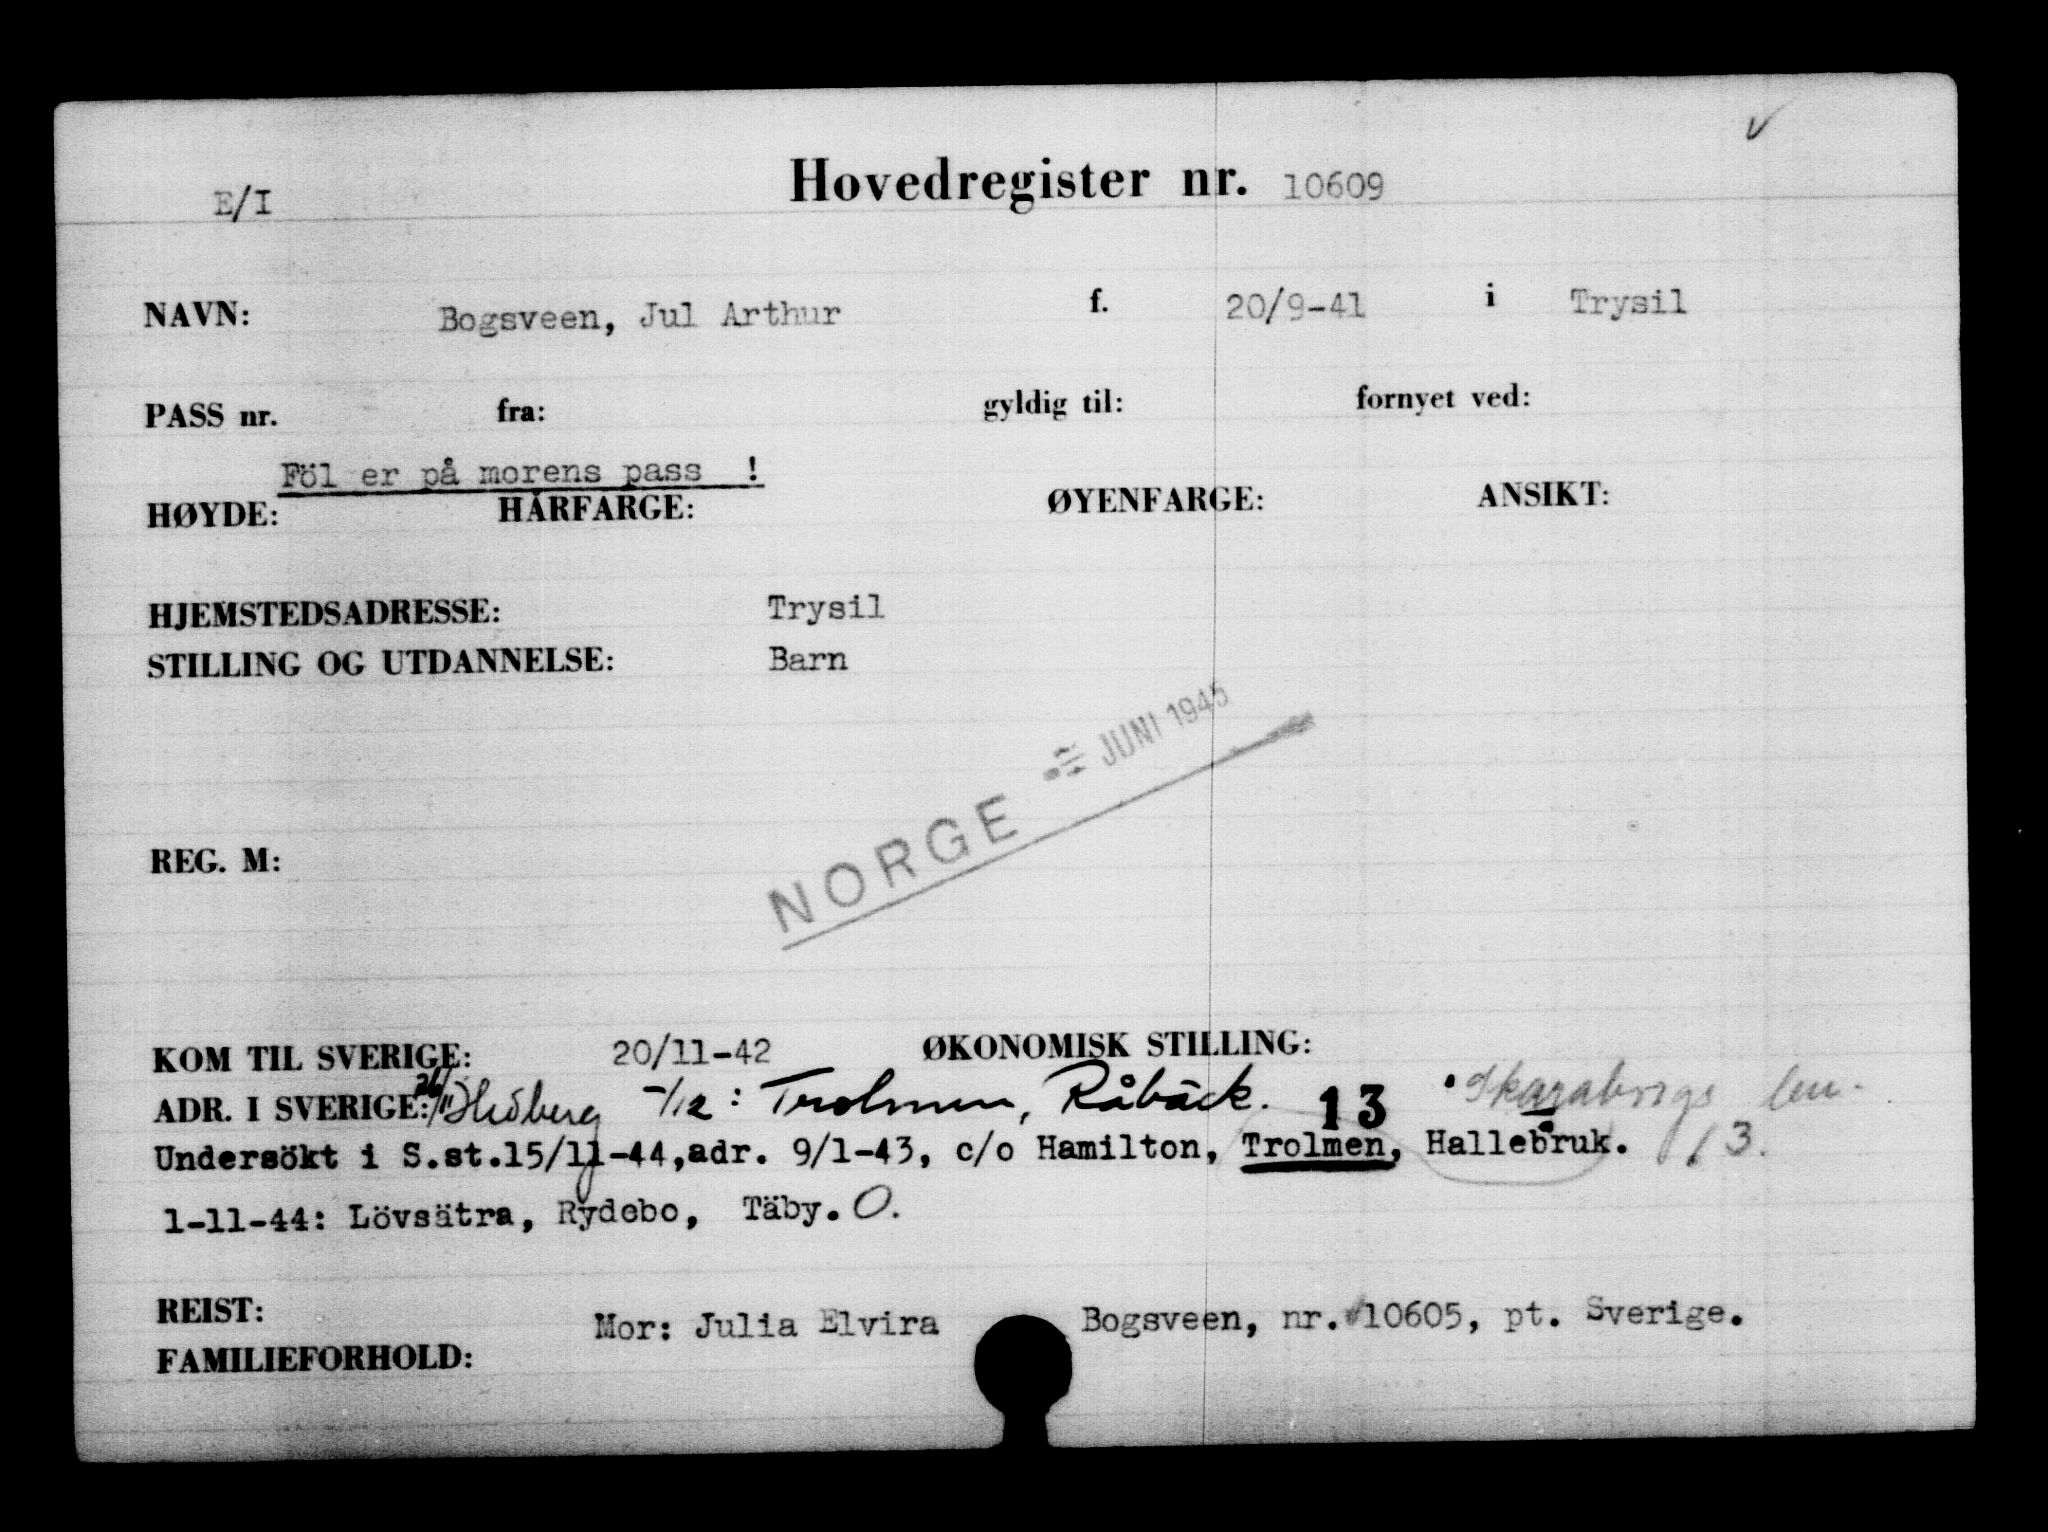 E/I
Hovedregister nr. 10609
NAVN: Bogsveen, Jul Arthur f. 20/9-41 i Trysil
PASS nr. fra: gyldig til: fornyet ved:
Föl er på morens pass !
HØYDE: HÅRFARGE: ØYENFARGE: ANSIKT:
HJEMSTEDSADRESSE: Trysil
STILLING OG UTDANNELSE: Barn
NORGE JUNI 1945
REG. M:
KOM TIL SVERIGE: 20/11-42 ØKONOMISK STILLING:
ADR. I SVERIGE: 26/11 -/12: Trolmen, Råbäck. 13 Skarabrogs len.
Undersökt i S.st.15/11-44,adr. 9/1-43, c/o Hamilton, Trolmen, Hallebruk. 13.
1-11-44: Lövsätra, Rydebo, Täby. O.
REIST:
Mor: Julia Elvira Bogsveen, nr. 10605, pt. Sverige.
FAMILIEFORHOLD: